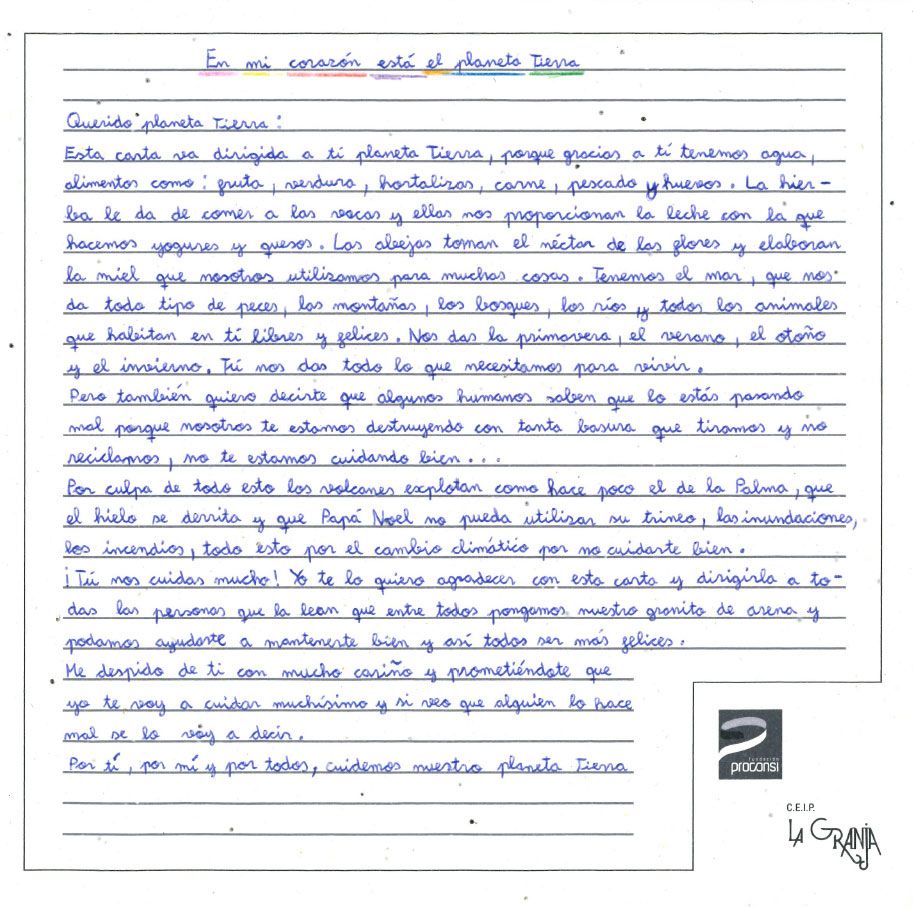 En mi corazón está el planeta Tierra
Querido planeta Tierra:
Esta carta va dirigida a tí planeta Tierra, porque gracias a tí tenemos agua,
alimentos como: fruta, verdura, hortalizas, carne, pescado y huevos. La hier-
ba le da de comer a las vacas y ellas nos proporcionan la leche con la que
hacemos yogures y quesos. Las abejas toman el néctar de las flores y elaboran
la miel que nosotros utilizamos para muchas cosas. Tenemos el mar, que nos
da todo tipo de peces, las montañas, los bosques, los ríos y todos los animales
que habitan en tí libres y felices. Nos das la primavera, el verano, el otoño
y el invierno. Tú nos das todo lo que necesitamos para vivir.
Pero también quiero decirte que algunos humanos saben que lo estás pasando
mal porque nosotros te estamos destruyendo con tanta basura que tiramos y no
reciclamos, no te estamos cuidando bien...
Por culpa de todo esto los volcanes explotan como hace poco el de la Palma, que
el hielo se derrita y que Papá Noel no pueda utilizar su trineo, las inundaciones,
los incendios, todo esto por el cambio climático por no cuidarte bien.
¡Tú nos cuidas mucho! Yo te lo quiero agradecer con esta carta y dirigirla a to-
das las personas que la lean que entre todos pongamos nuestro granito de arena y
podamos ayudarte a mantenerte bien y así todos ser más felices.
Me despido de ti con mucho cariño y prometiéndote que
yo te voy a cuidar muchísimo y si veo que alguien lo hace
mal se lo voy a decir.
Por tí, por mí y por todos, cuidemos nuestro planeta Tierra
fundación
proconsi
C.E.I.P.
LA GRANJA